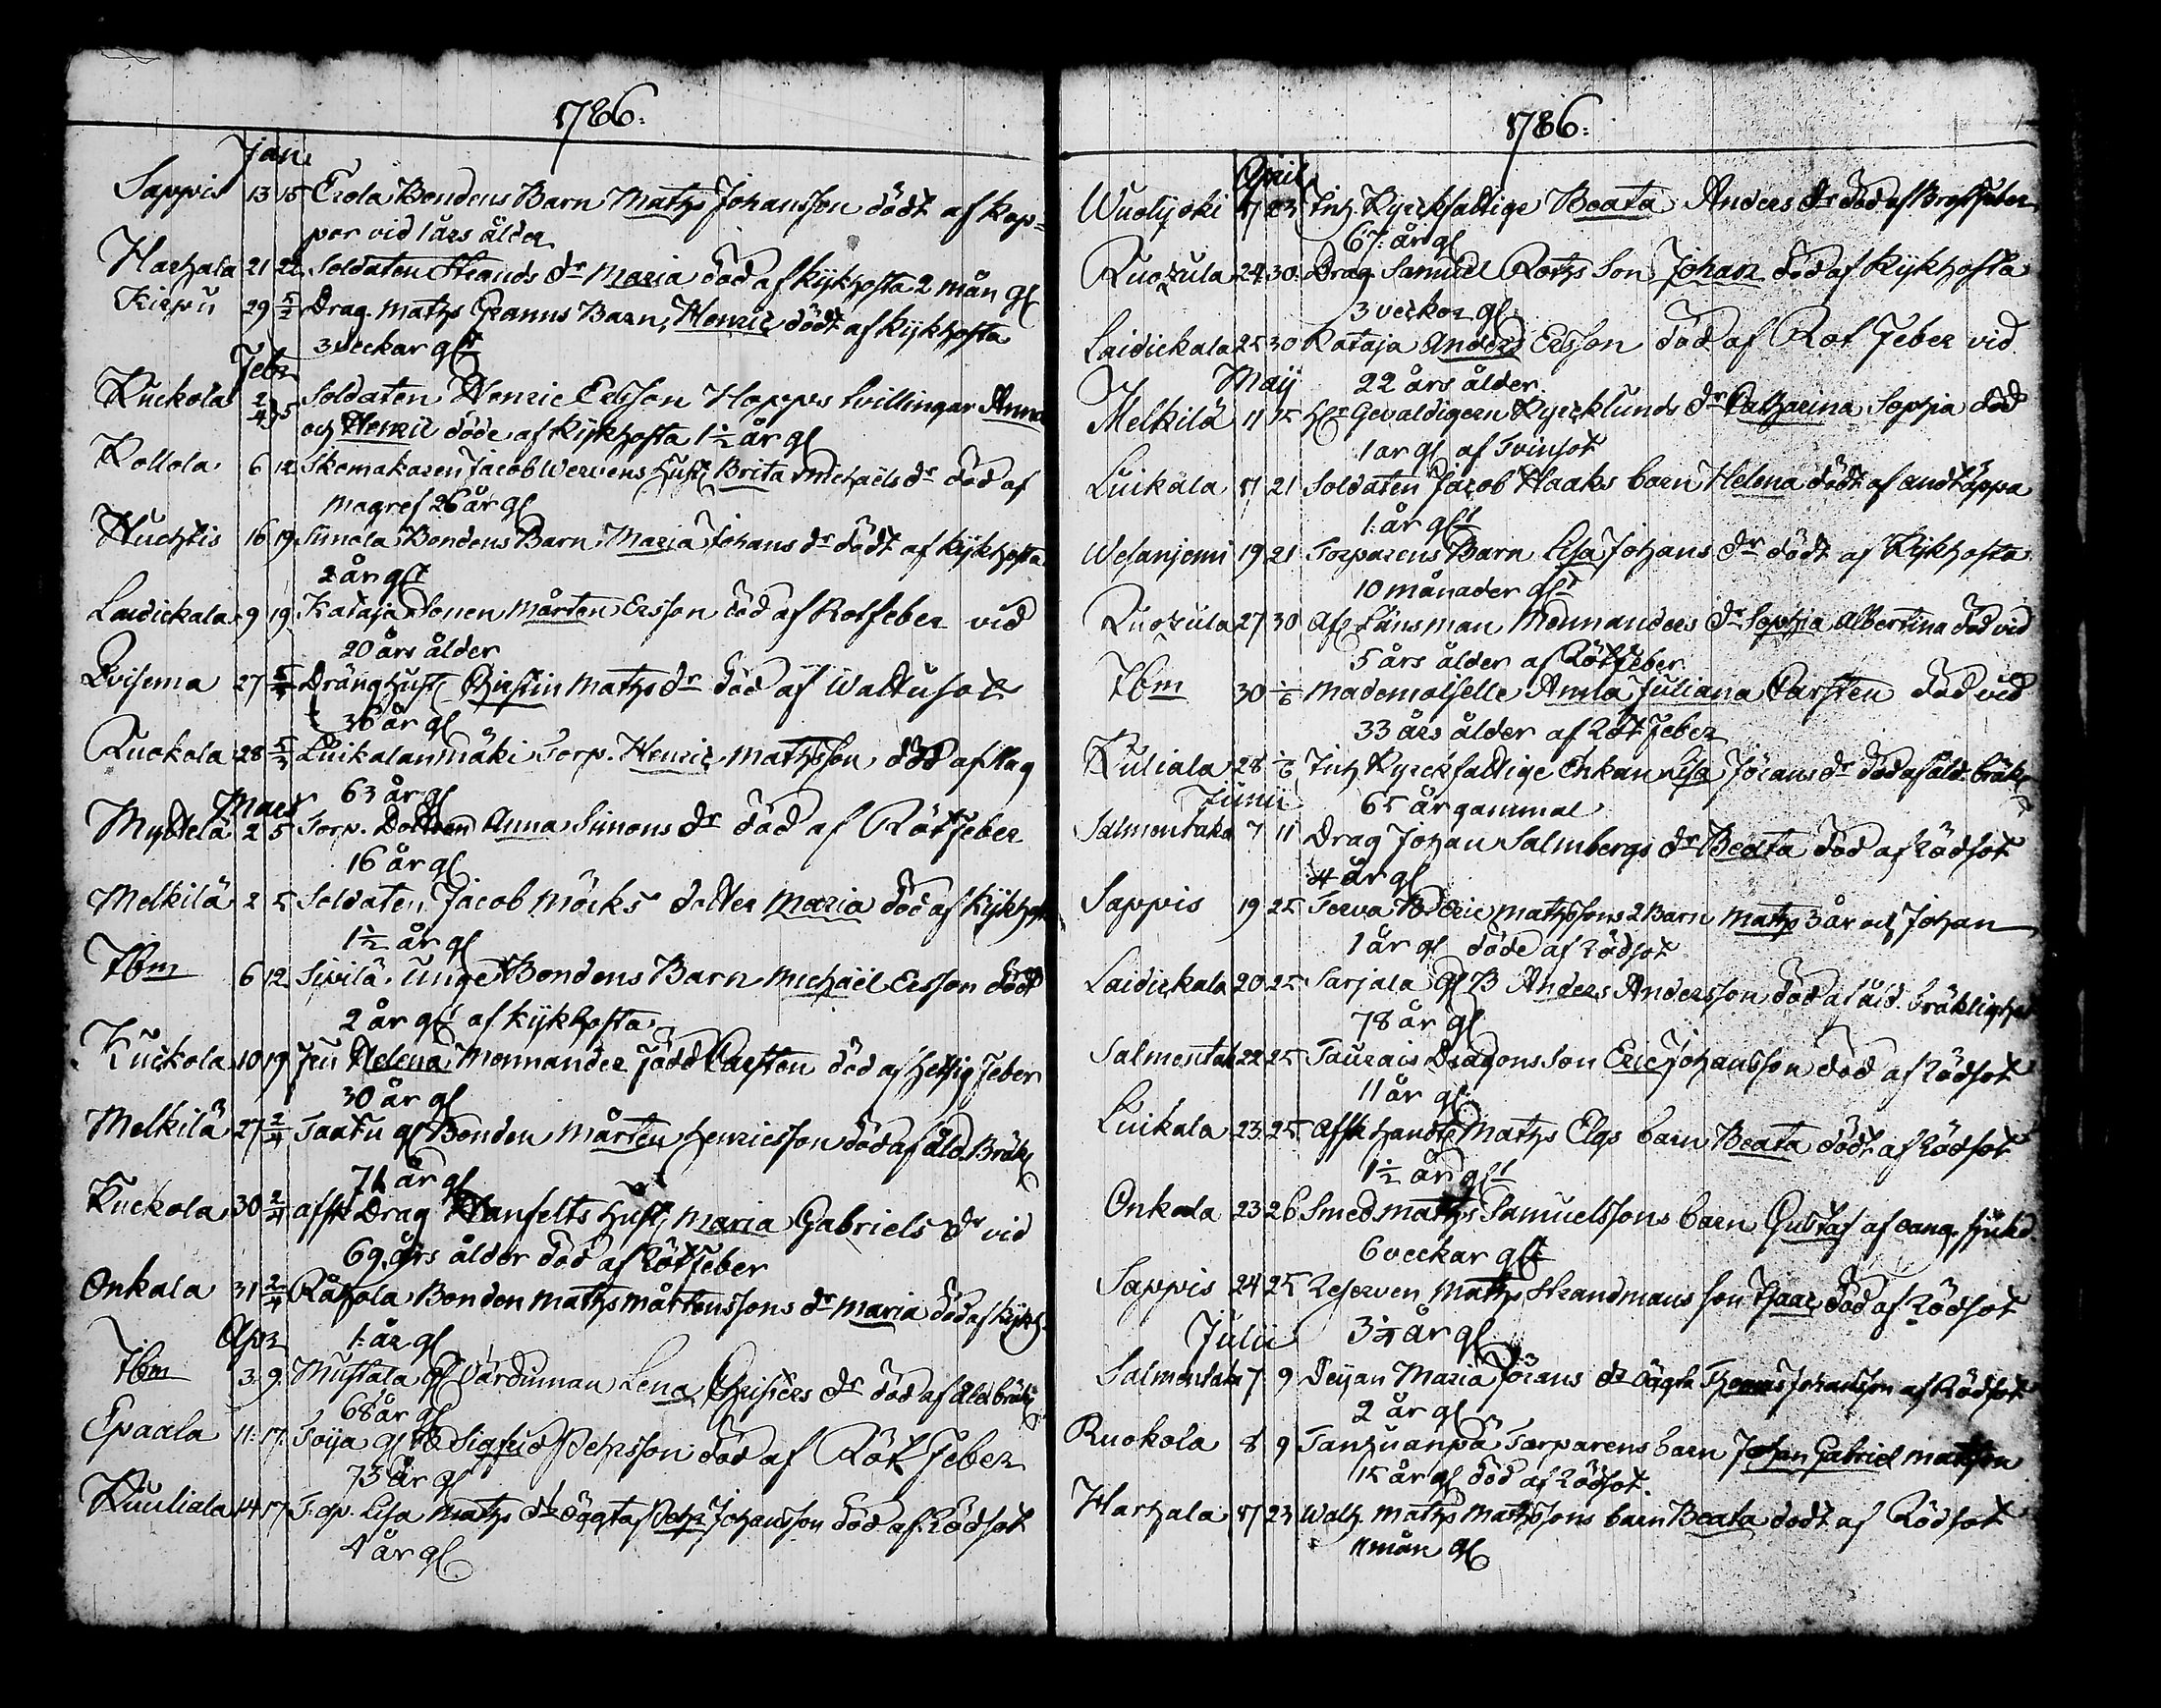 1786.
Jan.
Sappis 13 15 Erola Bondens Barn Maths Johansson dödt af Kop=
por vid 1 års ålder
Harhala 21 22 Soldaten Strands dr Maria död af Kijkhosta 2 mån gl
Kirpu 29 5/2 Drag. Maths Granns Barn, Henric dödt af Kijkhosta
3 veckar glt
Febr
Kuckola 2/4 5 Soldaten Henric Ersson Hopps tvillingar Anna
och Henric döde af Kijkhosta 1 1/2 år gl
Kollola 6 12 Skomakaren Jacob Wervens Hust. Brita Michaels dr död af
Magref 26 år gl
Huchtis 16 19 Simola Bondens Barn Maria Johans dr dödt af Kijkhosta
2 år glt
Laidickala 9 19 Kataja Sonen Mårten Ersson död af Rotfeber vid
20 års ålder
Qvisema 27 5/ Dräng Hust. Christin Maths dr död af Wattusot
36 år gl
Ruokola 28 5/ Luikalanmäki Torp. Henric Mathsson död af Hag
63 år gl
Mars
Myttelä 2 5 Torp. Dottren Anna Simons dr död af Rötfeber
16 år gl
Melkilä 2 5 Soldaten Jacob Mörks dotter Maria död af Kijkhost
1 1/2 år gl
Ibm 6 12 Sipilä Unge Bondens Barn Michaël Ersson dödt
2 år glt af Kijkhosta
Kuckola 10 19 Fru Helena Monnander född Carsten död af Hettig Feber
30 år gl
Melkilä 27 2/4 Taatu gl Bonden Mårten Henricsson död af åld. Bräkl
71 år gl
Kuckola 30 2/4 afsk Drag Hanfelts Hust. Maria Gabriels dr vid
69 års ålder död af Rötfeber
Onkala 31 2/4 Råhola Bonden Maths Mårtenssons dr Maria död af Kijkh.
1 år gl
Apr
Ibm 3 9 Mustala gl Värdinnan Lena Christers dr död af Åld. bräkl
68 år gl
Epaala 11 17 Toija gl B Sigfrid Pehrsson död af Röt Feber
73 år gl
Kuuliala 14 17 Torp. Lisa Maths dr oägta Pehr Johansson död af Rödsot
4 år gl
1786.
April
Wuolijoki 17 23 Inh. Kyrckfattige Beata Anders dr död af Bröstfeber
67 år gl
Ruohula 24 30 Drag. Samuel Roths Son Johan död af Kijkhosta
3 veckor gl
Laidickala 25 30 Kataja Anders Ersson död af Rot Feber vid
22 års ålder
Maij
Melkilä 11 15 Hr Gevaldigern Kyrcklunds dr Catharina Sophia död
1 år gl af Tvinsot
Luikala 17 21 Soldaten Jacob Haaks barn Helena dödt af andtäppa
1 år glt
Wesanjemi 19 21 Torparens Barn Lisa Johans dr dödt af Kijkhosta
10 månader glt
Ruohula 27 30 Afl. Länsman Monnanders dr Sophia Albertina död vid
5 års ålder af Rötfeber
Ibm 30 1/6 Mademoiselle Anna Juliana Carsten död vid
33 års ålder af Röt Feber
Kuliala 28 1/6 Inh. Kyrckfattige Enkan Lisa Jörans dr död af åld. bräkl
65 år gammal
Junii
Salmentaka 7 11 Drag Johan Salmbergs dr Beata död af Rödsot
4 år gl
Sappis 19 25 Terva B Eric Mathssons 2 Barn Maths 3 år och Johan
1 år gl döde af Rödsot
Laidickala 20 25 Sarjala gl B Anders Andersson död af åld. bräklighet
78 år gl
Salmentak 22 25 Taurais Dragons Son Eric Johansson död af Rödsot
11 år gl
Luikala 23 25 Afsk Maths Elgs barn Beata dödt af Rödsot
1 1/2 år glt
Onkala 23 26 Smed Maths Samuelssons barn Gustaf af oang. sjukd.
6 veckar glt
Sappis 24 25 Reserven Maths Strandmans son Isaac död af Rödsot
3 1/4 år gl
Julii
Salmentaka 7 9 Deijan Maria Jörans dr oägta Thomas Johansson af Rödsot
2 år gl
Ruokola 8 9 Tanhuanpä Torparens barn Johan Gabriel Mathsson
15 år gl död af Rödsot.
Harhala 17 23 Walh. Maths Mathssons barn Beata dödt af Rödsot
11 mån gl